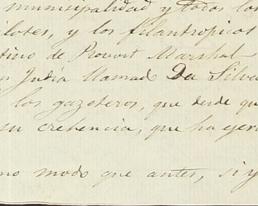 municipalidad y todos los
lotes, y los filantropicos
tino de Provost Marshal
Judia llamad Da Silva
los gazeteros, que desde que
su crehencia, que ha ejer
mo modo que antes, si y